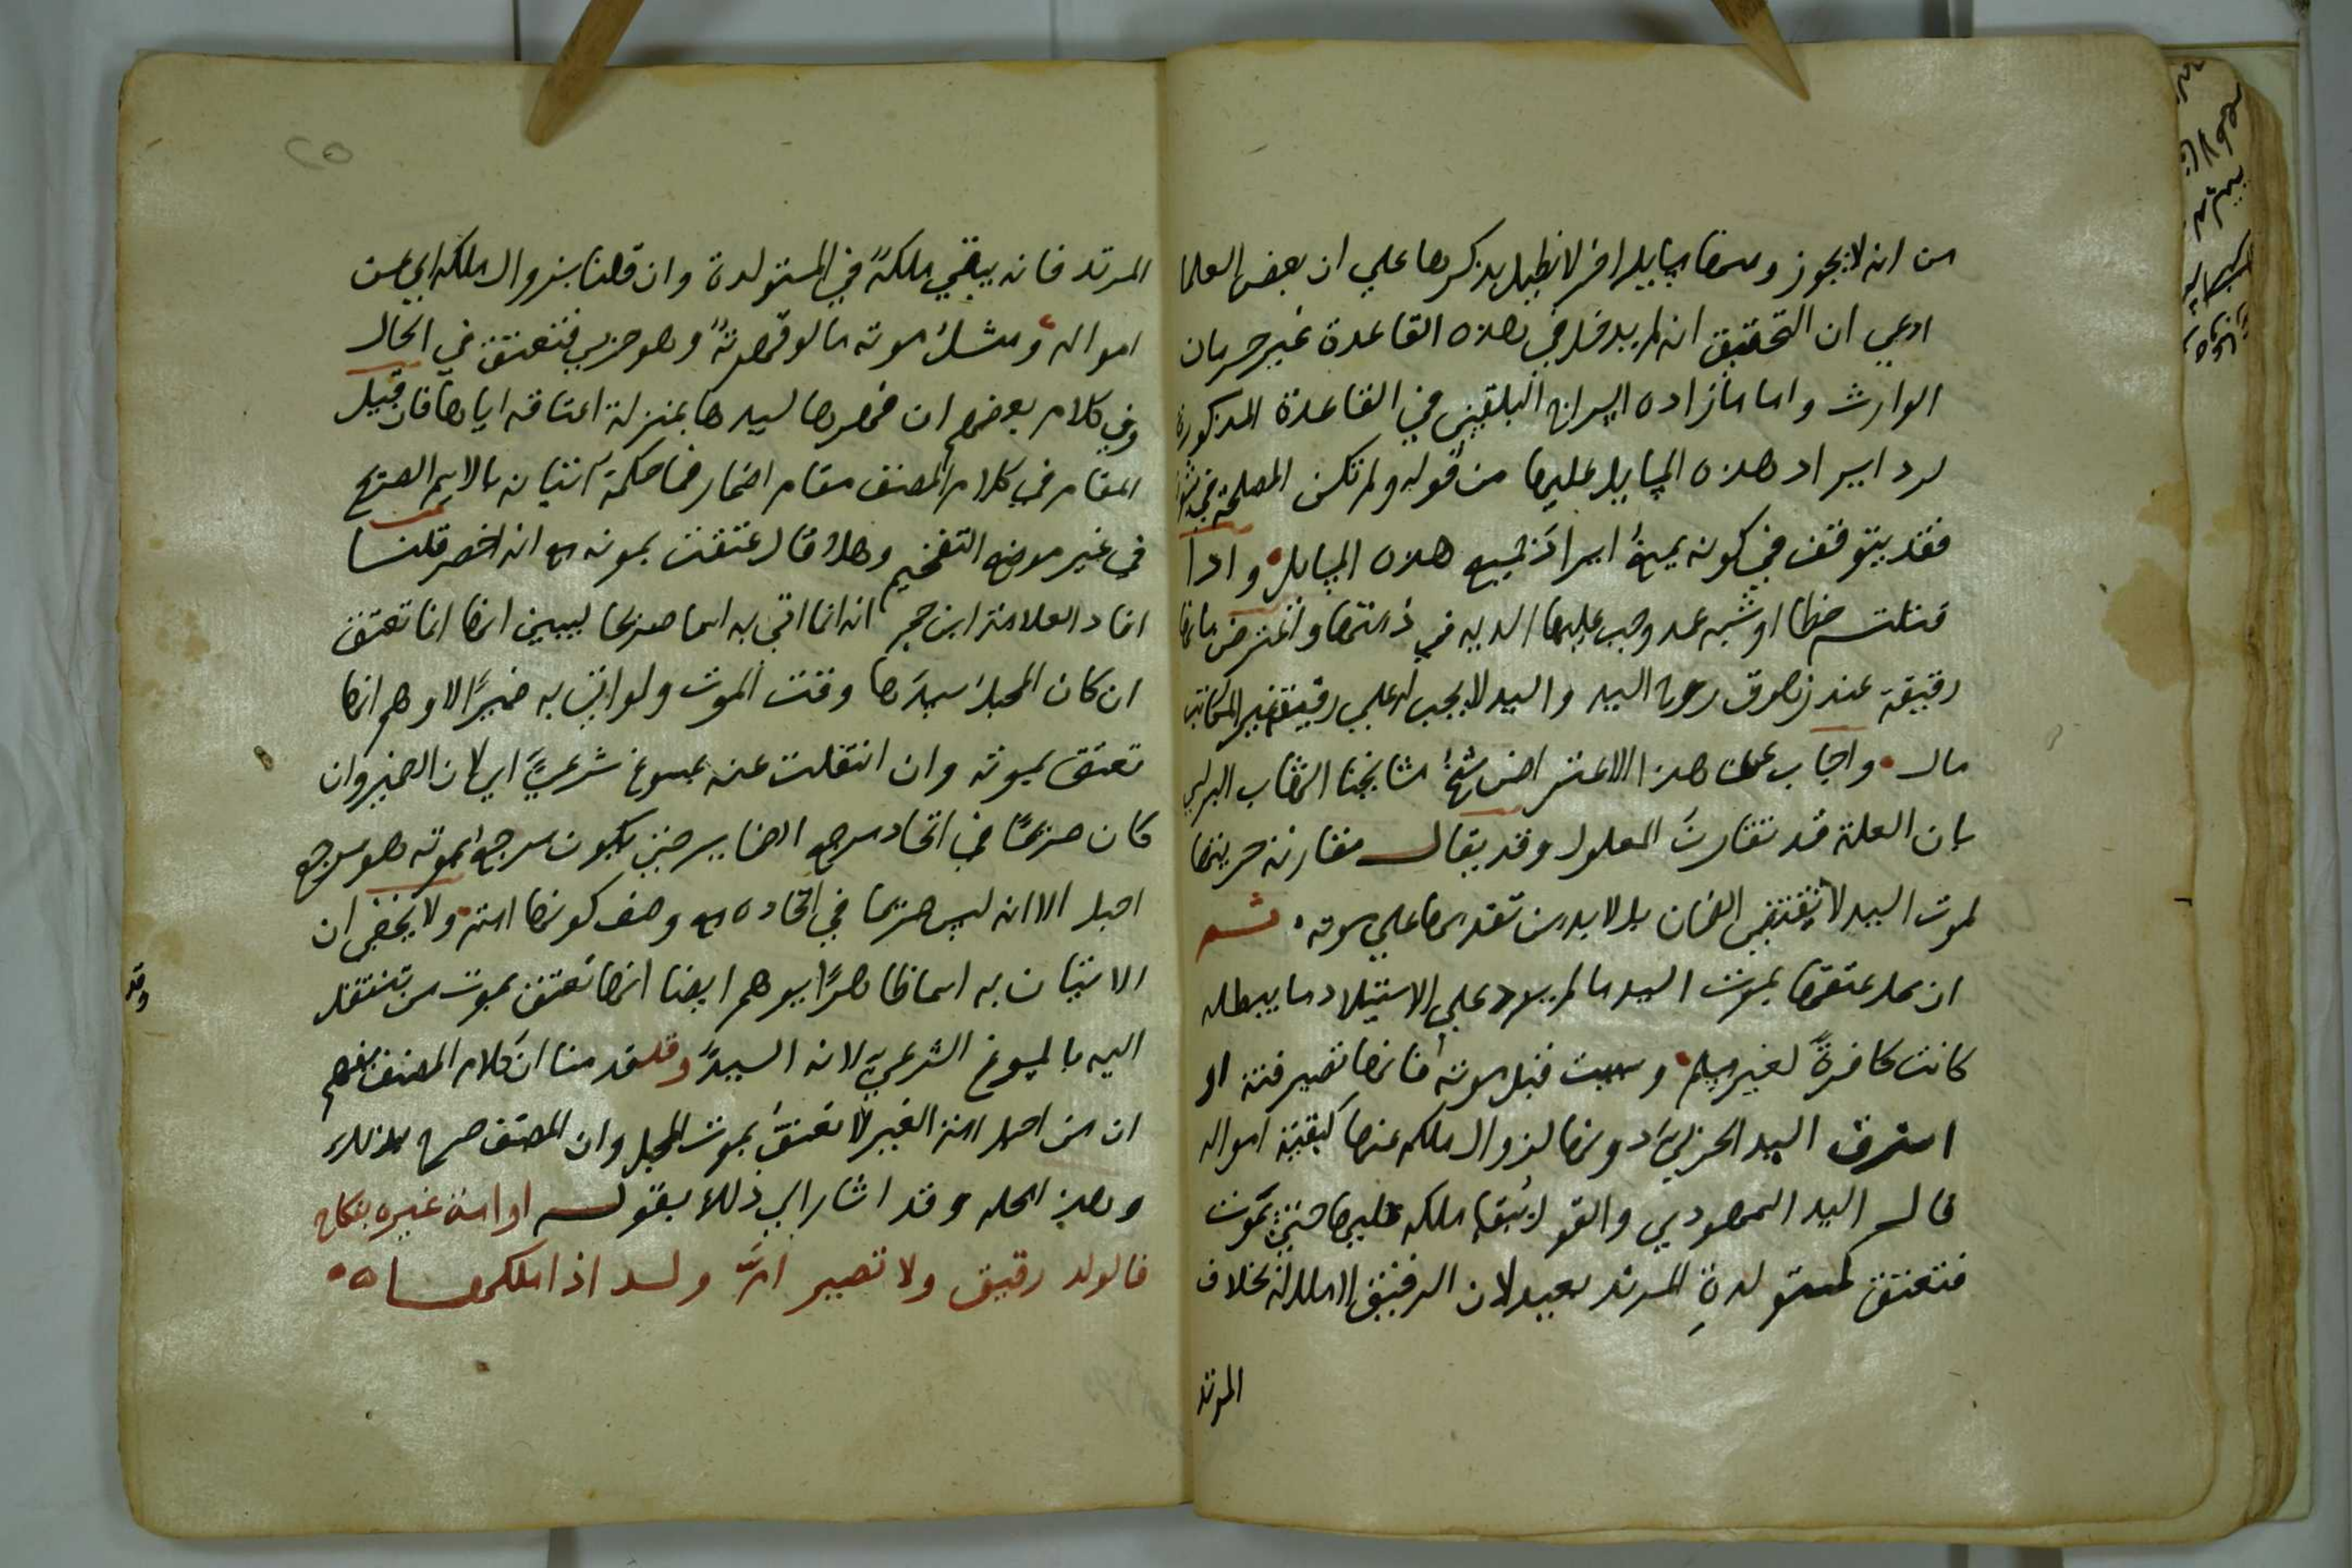 من انه لا يجوز ومنها مسايل اخر لا نطيل بذكرها علي ان بعض العلما
ادعي ان التحقيق انه لم يدخل في هذه القاعدة غير حرمان
الوارث واما ما زاده السراج البلقيني في القاعدة المذكورة
لرد ايراد هذه المسايل عليها من قوله ولم تكن المصلحة في
فقد يتوقف في كونه يمنع ايراد جميع هذه المسايل واذا
قتلته خطا او شبه عمد وجب عليها الديه في ذمتها واعترض بانها
رقيقة عند زهوق روح السيد والسيد لا يجب له علي رقيقه غير المكاتب
مال واجاب عن هذا الاعتراض شيخ مشايخنا الشهاب البرلسي
بان العلة قد تقارن المعلول وقد يقال مقارنة حريتها
لموت السيد لا تقتضي الضمان بل لا بد من تقدمها علي موته ثم
ان محل عتقها بموت السيد ما لم يرد علي الاستيلاد ما يبطله
كانت كافرة لغير مسلم وسبيت قبل موته فانها تصير قنة او
استرق السيد الحربي دونها لزوال ملكه عنها كبقية امواله
قال السيد السمهودي والقول ببقا ملكه عليها حتي يموت
فتعتق كمستولدة المرتد بعيد لان الرقيق لا ملك له بخلاف
المرتد
المرتد فانه يبقي ملكه في المستولدة وان قلنا بزوال ملكه اي عن
امواله ومثل موته ما لو قهرته وهو حربي فتعتق في الحال
وفي كلام بعضهم ان قهرها لسيدها بمنزلة اعتاقه اياها فان قيل
المقام في كلام المصنف مقام اضمار فما حكمة اتيانه بالاسم الصريح
في غير موضع التفخيم وهلا قال عتقت بموته مع انه اخصر قلنا
افاد العلامة ابن حجر انه انما اتي به اسما صريحا ليبين انها انما تعتق
ان كان المحبل سيدها وقت الموت ولو اتي به ضميرا لاوهم انها
تعتق بموته وان انتقلت عنه بمسوغ شرعي اي لان الضمير وان
كان صريحا في اتحاد مرجع الضماير حتي يكون مرجع بموته هو مرجع
احبل الا انه ليس صريحا في اتحاده مع وصف كونها امته ولا يخفي ان
الاتيان به اسما ظاهرا يوهم ايضا انها تعتق بموت من تنتقل
اليه بالمسوغ الشرعي لانه السيد وقد قدمنا ان كلام المصنف يفهم
ان من احبل امة الغير لا تعتق بموت المحبل وان المصنف صرح بذلك
وقد
وبهذا كله وقد اشار الي ذلك بقوله او امة غيره بنكاح
فالولد رقيق ولا تصير ام ولد اذا ملكها
٢٥